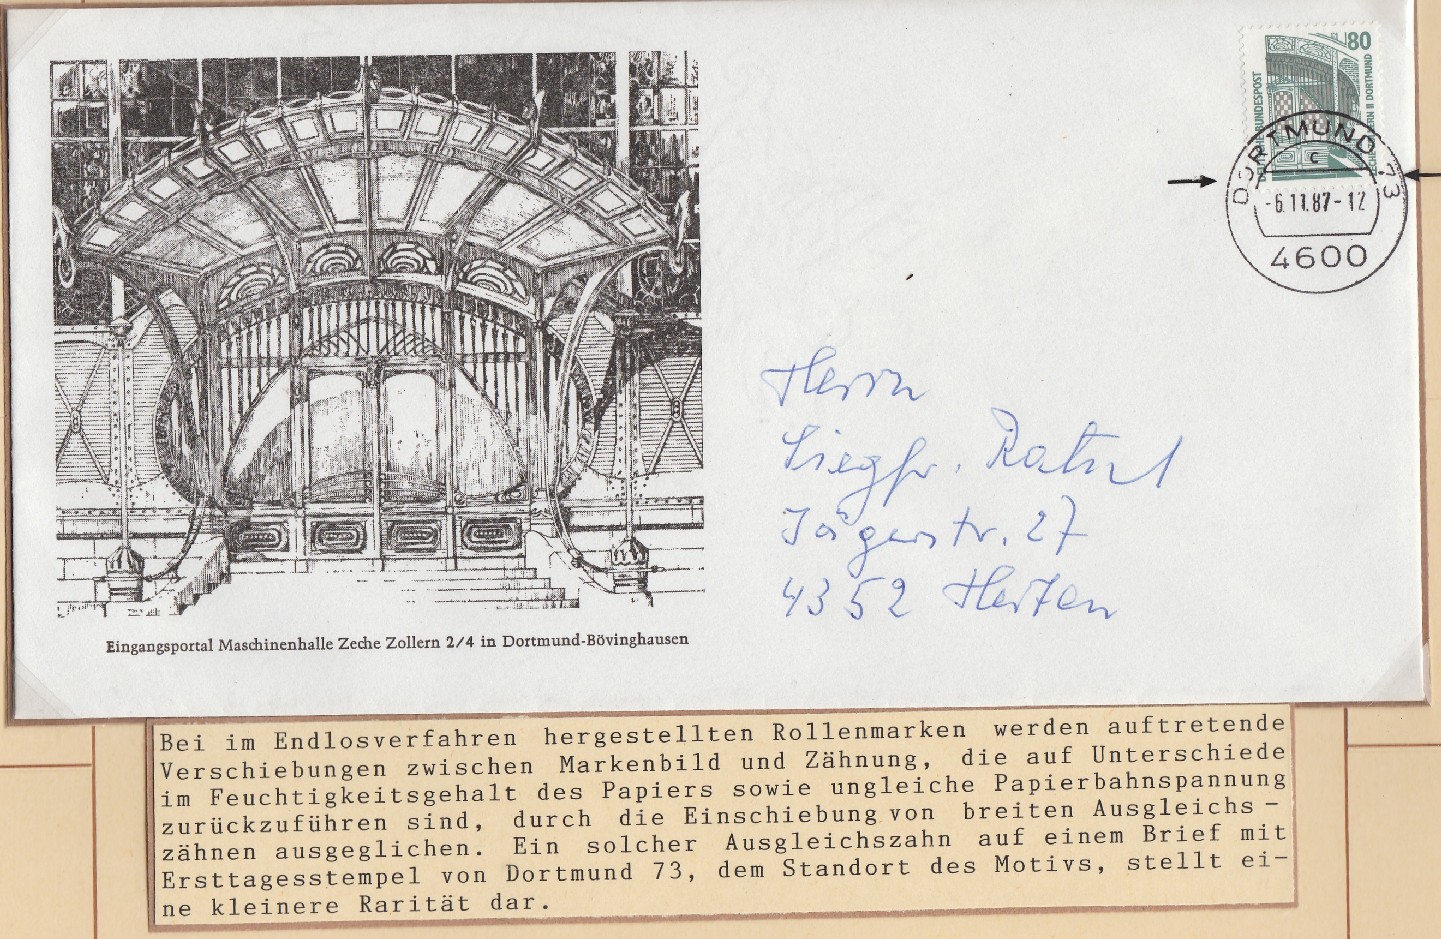 80
DEUTSCHE BUNDESPOST
ZECHE ZOLLERN II DORTMUND
DORTMUND 73
c
-6.11.87-12
4600
Herrn
Siegfr.
Jägerstr. 27
4352 Herten
Eingangsportal Maschinenhalle Zeche Zollern 2/4 in Dortmund-Bövinghausen
Bei im Endlosverfahren hergestellten Rollenmarken werden auftretende
Verschiebungen zwischen Markenbild und Zähnung, die auf Unterschiede
im Feuchtigkeitsgehalt des Papiers sowie ungleiche Papierbahnspannung
zurückzuführen sind, durch die Einschiebung von breiten Ausgleichs-
zähnen ausgeglichen. Ein solcher Ausgleichszahn auf einem Brief mit
Ersttagesstempel von Dortmund 73, dem Standort des Motivs, stellt ei-
ne kleinere Rarität dar.